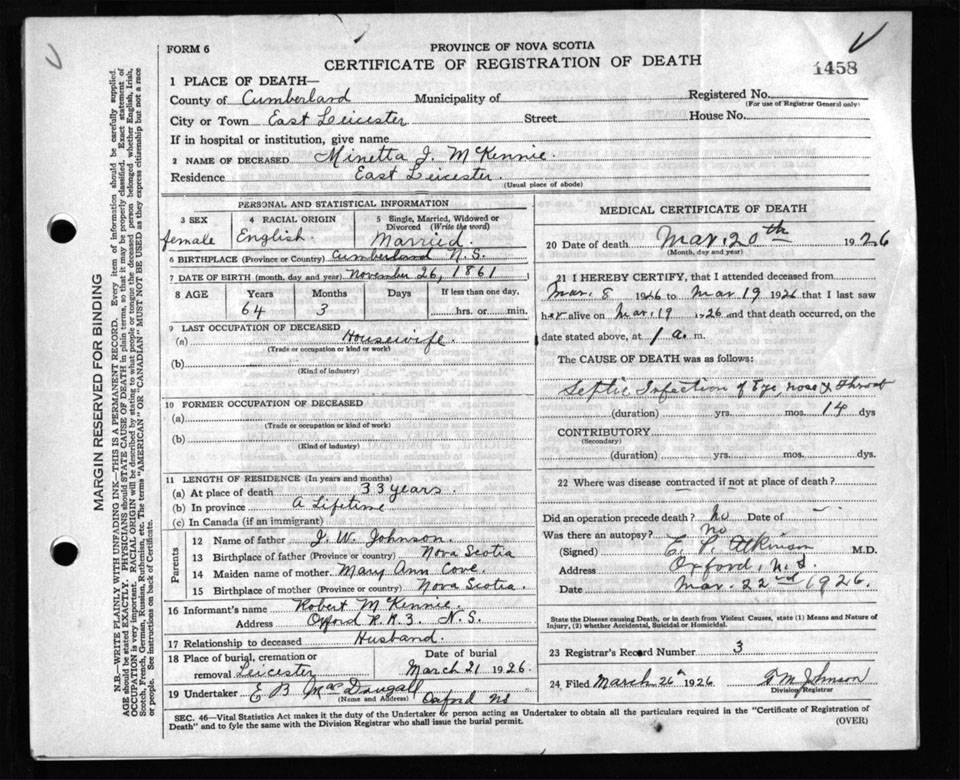 FORM 6
PROVINCE OF NOVA SCOTIA
CERTIFICATE OF REGISTRATION OF DEATH
1458
1 PLACE OF DEATH—
County of Cumberland Municipality of Registered No.
(For use of Registrar General only)
City or Town East Leicester Street House No.
If in hospital or institution, give name
2 NAME OF DECEASED Minetta J. McKennie.
Residence East Leicester.
(Usual place of abode)
PERSONAL AND STATISTICAL INFORMATION
3 SEX female
4 RACIAL ORIGIN English.
5 Single, Married, Widowed or Divorced (Write the word) Married.
6 BIRTHPLACE (Province or Country) Cumberland N.S.
7 DATE OF BIRTH (month, day and year) November 26, 1861
8 AGE Years Months Days If less than one day,
64 3 hrs. or min.
9 LAST OCCUPATION OF DECEASED
(a) Housewife.
(Trade or occupation or kind or work)
(b)
(Kind of industry)
10 FORMER OCCUPATION OF DECEASED
(a)
(Trade or occupation or kind of work)
(b)
(Kind of industry)
11 LENGTH OF RESIDENCE (In years and months)
(a) At place of death 33 years.
(b) In province A Lifetime
(c) In Canada (if an immigrant)
Parents
12 Name of father J. W. Johnson.
13 Birthplace of father (Province or country) Nova Scotia
14 Maiden name of mother Mary Ann Cove.
15 Birthplace of mother (Province or country) Nova Scotia.
16 Informant's name Robert McKennie.
Address Oxford R.R.3. N.S.
17 Relationship to deceased Husband.
18 Place of burial, cremation or removal Leicester
Date of burial March 21 1926.
19 Undertaker E B MacDougall Oxford NS
(Name and Address)
MEDICAL CERTIFICATE OF DEATH
20 Date of death Mar. 20th 1926
(Month, day and year)
21 I HEREBY CERTIFY, that I attended deceased from
Mar. 8 1926 to Mar 19 1926 that I last saw
her alive on Mar. 19 1926 and that death occurred, on
date stated above, at 1 a. m.
The CAUSE OF DEATH was as follows:
Septic Infection of Eye, nose & throat
(duration) yrs. mos. 14 dys
CONTRIBUTORY
(Secondary)
(duration) yrs. mos. dys.
22 Where was disease contracted if not at place of death?
Did an operation precede death? No Date of
Was there an autopsy? No
(Signed) E. P. Atkinson M.D.
Address Oxford, N.S.
Date Mar. 22nd 1926.
State the Disease causing Death, or in death from Violent Causes, state (1) Means and Nature of
Injury, (2) whether Accidental, Suicidal or Homicidal.
23 Registrar's Record Number 3
24 Filed March 26th 1926 Johnson
Division Registrar
SEC. 46—Vital Statistics Act makes it the duty of the Undertaker or person acting as Undertaker to obtain all the particulars required in the "Certificate of Registration of
Death" and to fyle the same with the Division Registrar who shall issue the burial permit.
(OVER)
MARGIN RESERVED FOR BINDING
N.B.—WRITE PLAINLY WITH UNFADING INK—THIS IS A PERMANENT RECORD. Every item of information should be carefully supplied.
AGE should be stated EXACTLY. PHYSICIANS should STATE CAUSE OF DEATH in plain terms, so that it may be properly classified. Exact statement of
OCCUPATION is very important. RACIAL ORIGIN will be described by stating to what people or tongue the deceased person belonged whether English, Irish,
Scotch, French, German, Russian, Ruthenian, etc. The terms "AMERICAN" OR "CANADIAN" MUST NOT BE USED as they express citizenship but not a race
or people. See instructions on back of Certificate.